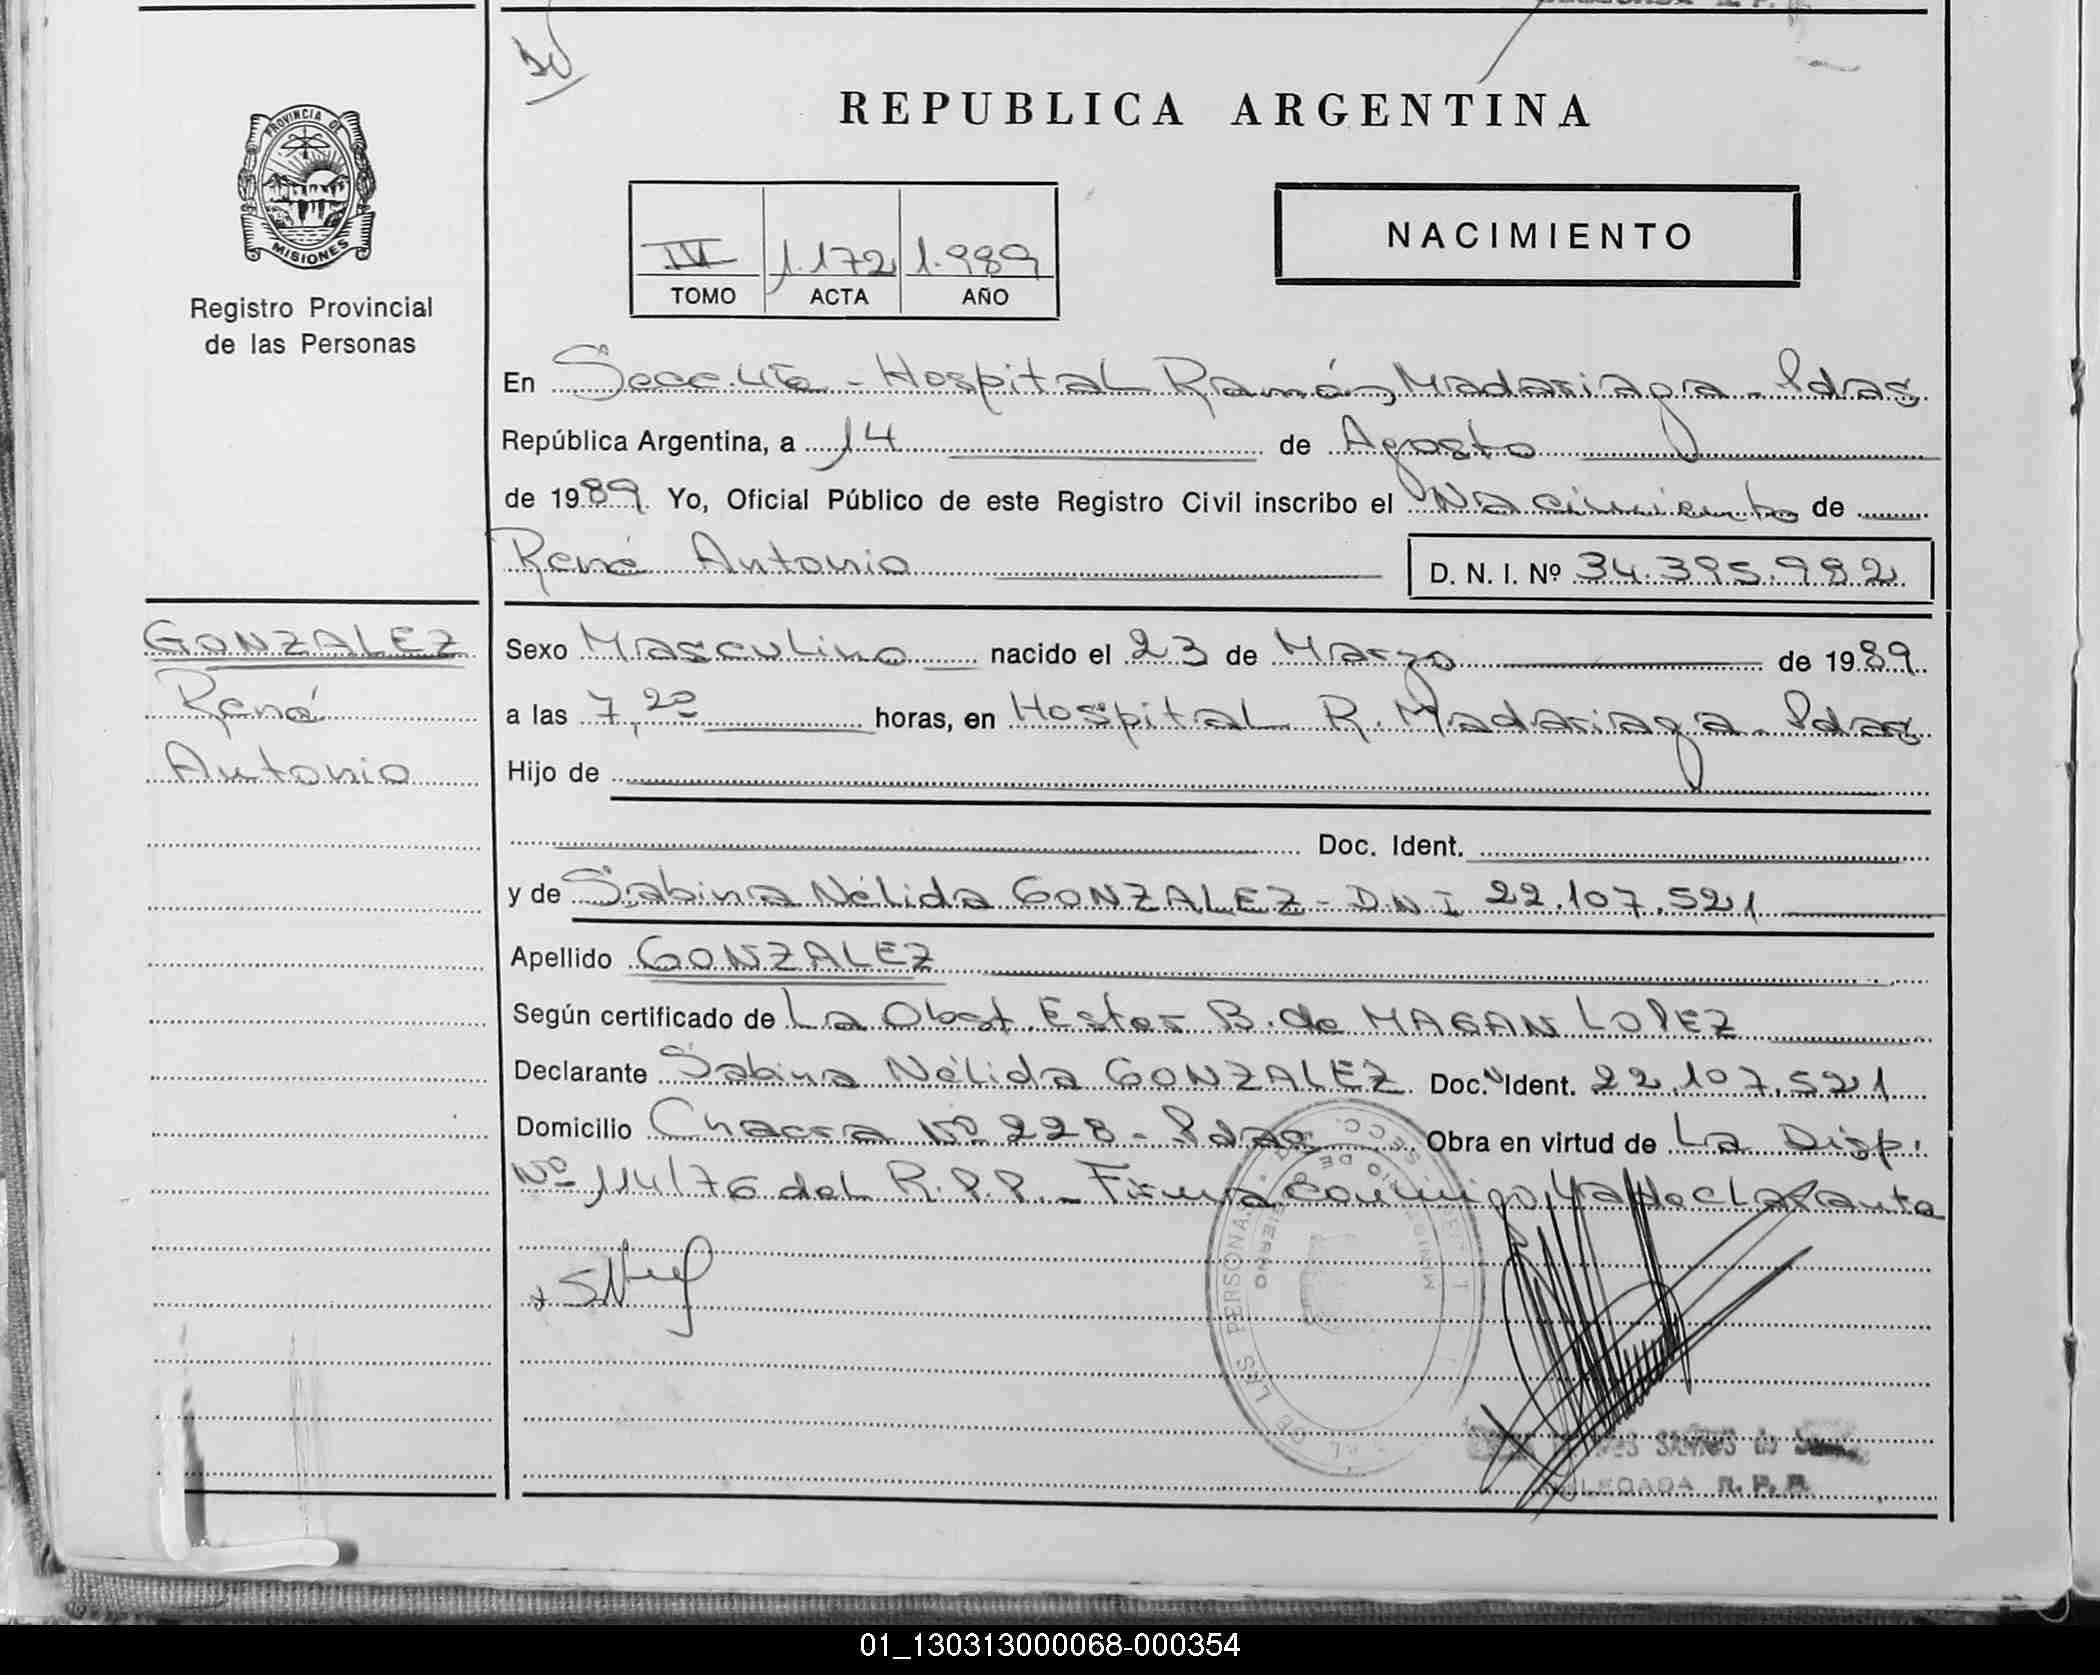 REPUBLICA ARGENTINA
PROVINCIA DE
MISIONES
Registro Provincial
de las Personas
IV 1.172 1.989
TOMO ACTA AÑO
NACIMIENTO
En Secc. 4ta - Hospital Ramón Madariaga - Pdas
República Argentina, a 14 de Agosto
de 1989. Yo, Oficial Público de este Registro Civil inscribo el Nacimiento de
René Antonio D. N. I. Nº 34.395.982
GONZALEZ
René
Antonio
Sexo Masculino nacido el 23 de Marzo de 1989.
a las 7,20 horas, en Hospital R. Madariaga - Pdas
Hijo de
Doc. Ident.
y de Sabina Nélida GONZALEZ - DNI 22.107.521
Apellido GONZALEZ
Según certificado de La Obst. Ester B. de MAGAN LOPEZ
Declarante Sabina Nélida GONZALEZ Doc. Ident. 22.107.521
Domicilio Chacra Nº 228 - Pdas Obra en virtud de La Disp.
Nº 114/76 del R.P.P. - Firma conmigo la declarante
DE LAS PERSONAS
SECC.
SANTOS de
DELEGADA R. P. P.
01_130313000068-000354